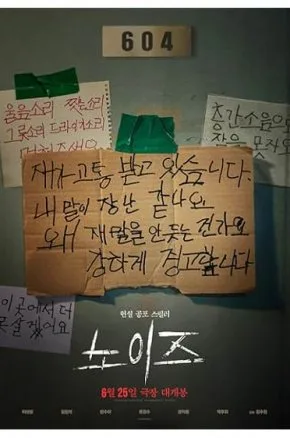 604
웅웅소리 찢는소리
그릇소리 드라이기소리
멈춰주세요
층간소음으로
잠을 못자요
제가 고통 받고 있습니다.
내 말이 장난 같나요.
왜 제 말을 안 듣는 건가요
강하게 경고합니다
이 곳에서 더
못 살겠어요
현실 공포 스릴러
노이즈
6월 25일 극장 대개봉